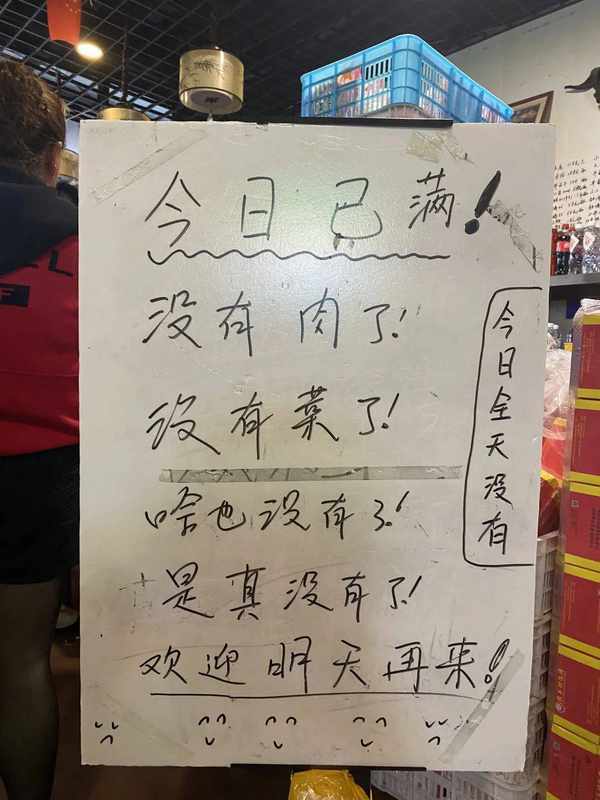 今日已满!
没有肉了!
没有菜了!
啥也没有了!
是真没有了!
欢迎明天再来!
今日全天没有